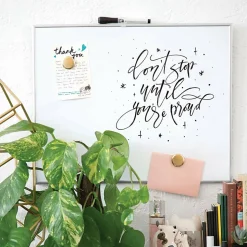 thank
you
don't stop
until
you're proud